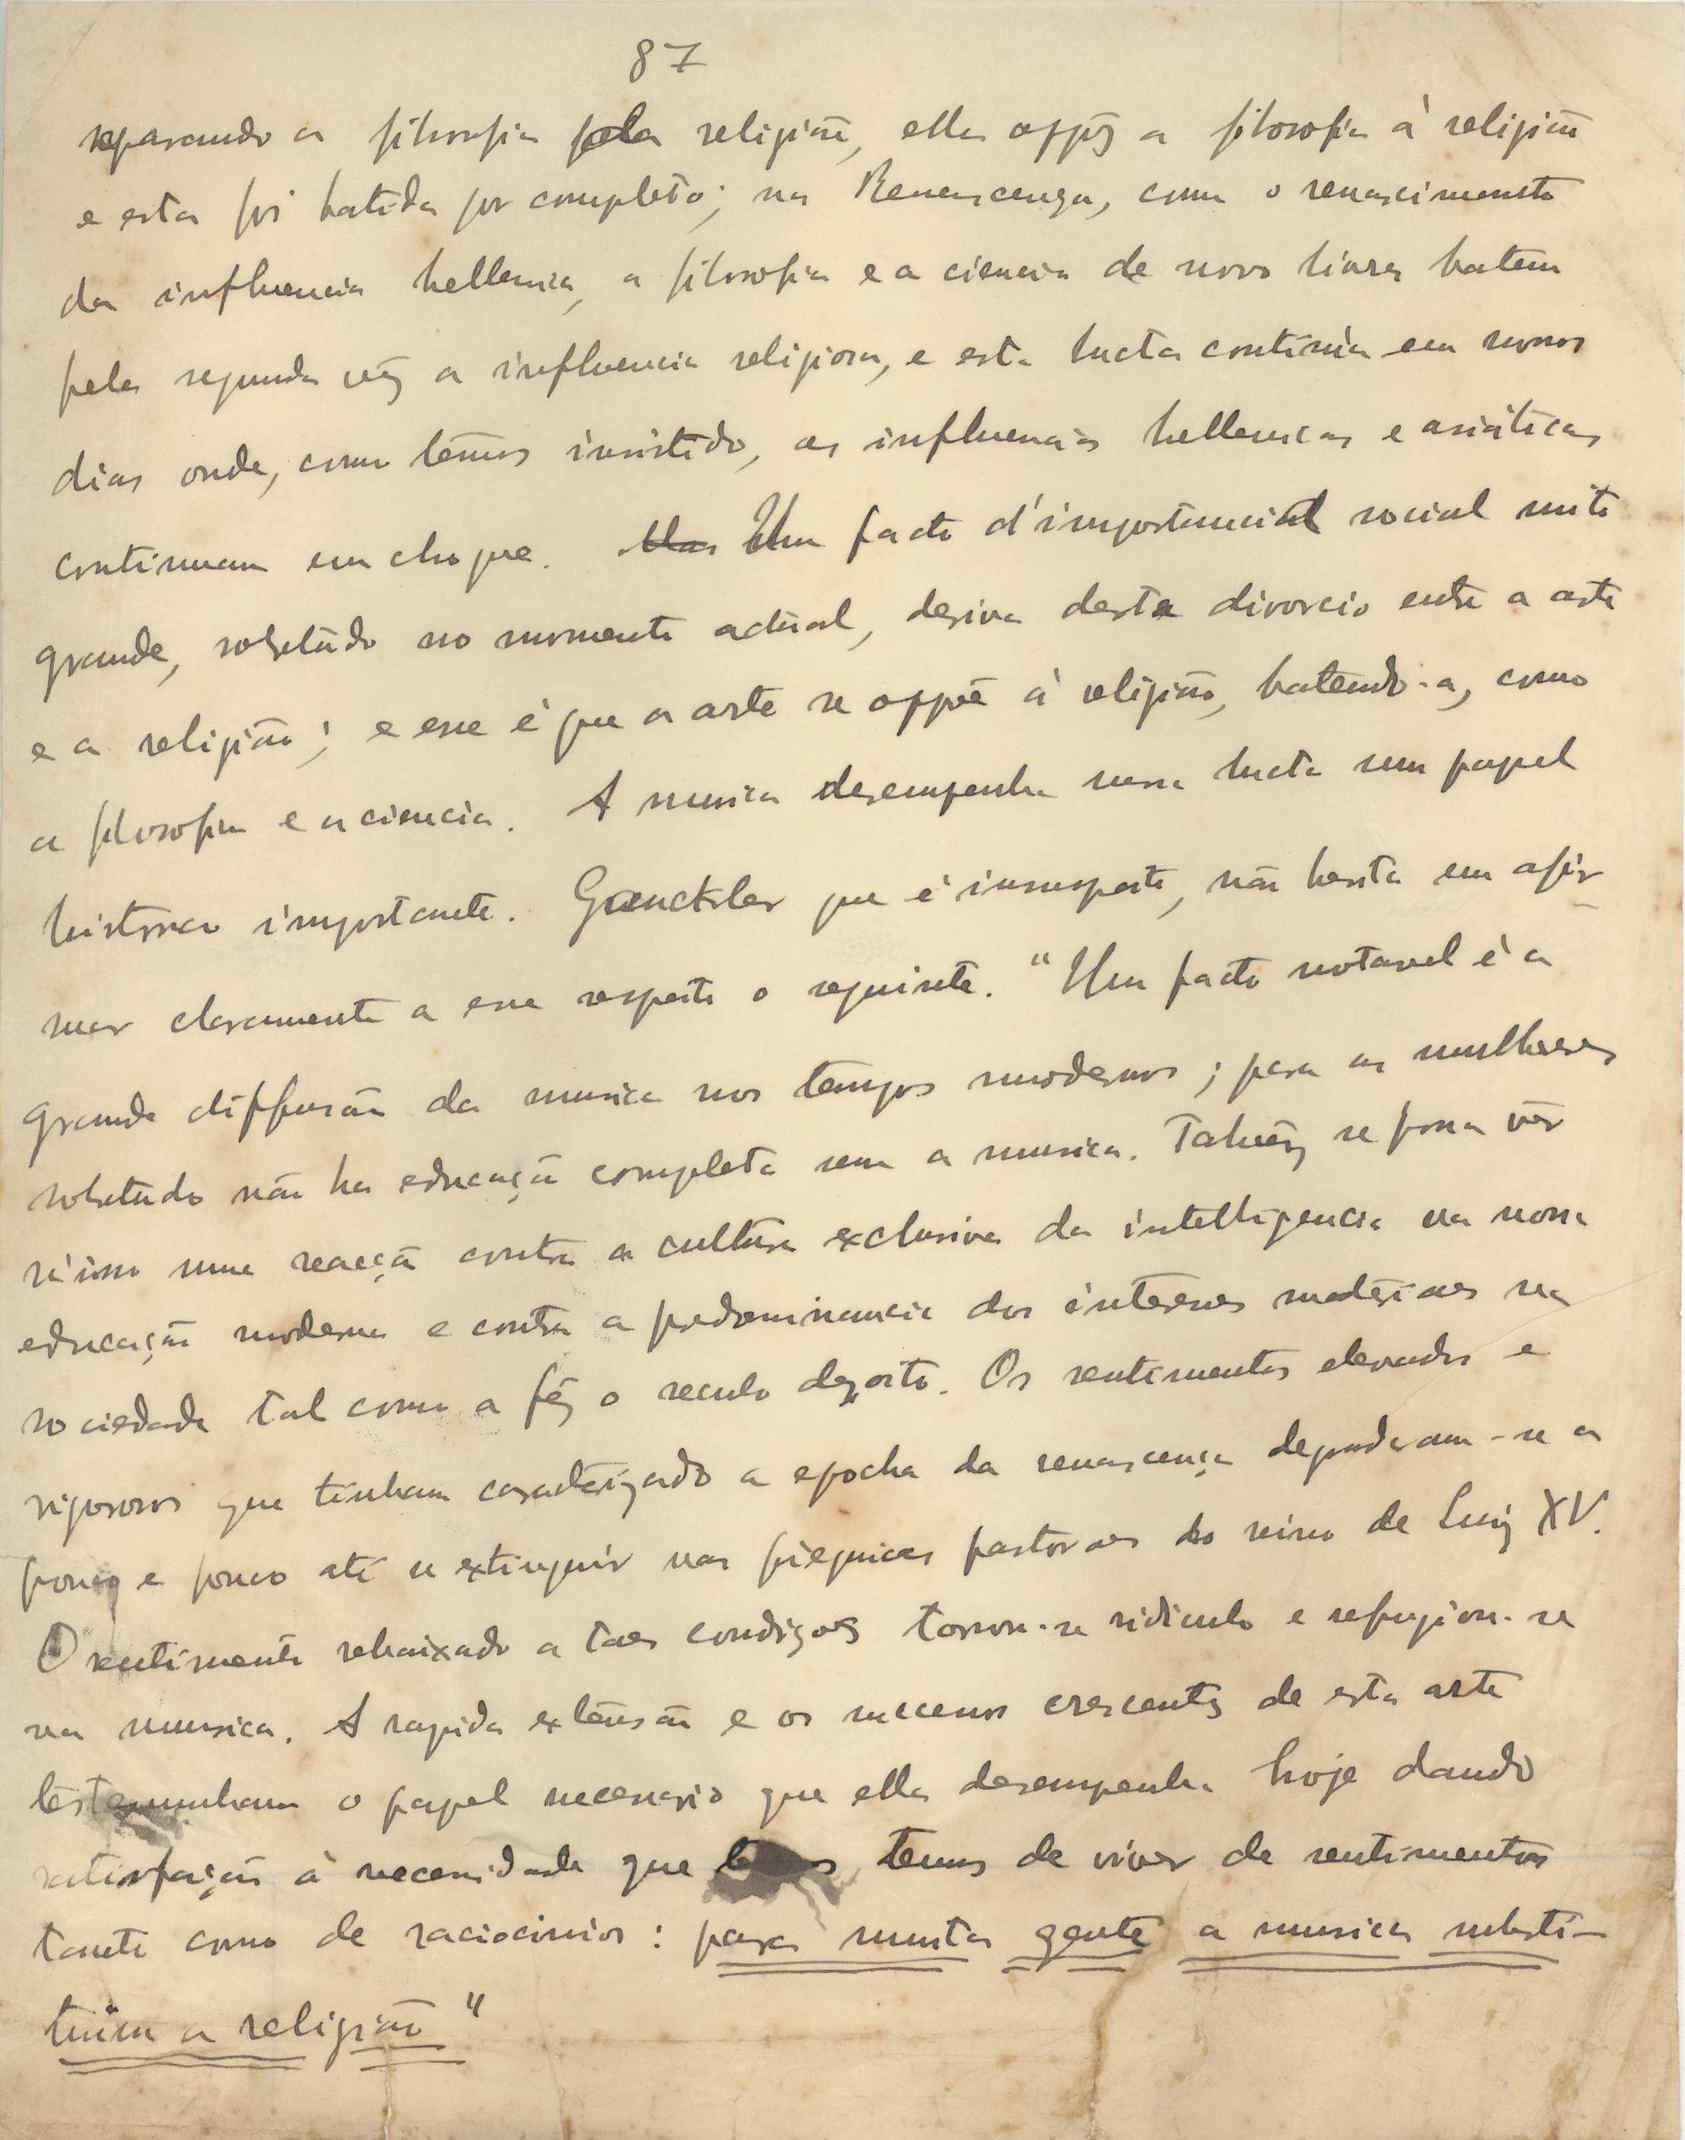 87
separando a filosofia pela religião, ella oppôz a filosofia á religião
e esta foi batida por completo; na Renascença, com o renascimento
da influencia hellenica, a filosofia e a ciencia de novo livres batem
pela segunda vêz a influencia religiosa, e esta lucta continúa em nossos
dias onde, como temos insistido, as influencias hellenicas e asiáticas
continuam em choque. Mas Um facto d'importancia social muito
grande, sobretudo no momento actual, deriva deste divorcio entre a arte
e a religião; e esse é que a arte se oppõe á religião, batendo-a, como
a filosofia e a ciencia. A musica desempenha nessa lucta um papel
historico importante. que é insuspeito, não hesita em afir-
mar claramente a esse respeito o seguinte. "Um facto notavel é a
grande diffusão da musica nos tempos modernos; para as mulheres
sobretudo não ha educação completa sem a musica. Talvêz se possa vêr
n'isso uma reacção contra a cultura exclusiva da intelligencia na nossa
educação moderna e contra a predominancia dos interesses materiaes na
sociedade tal como a fêz o seculo dezoito. Os sentimentos elevados e
vigorosos que tinham caracterizado a epocha da renascença degradaram-se a
pouco e pouco até se extinguir nas pieguices pastoraes do reino de Luiz XV.
O sentimento rebaixado a taes condições tornou-se ridiculo e refugiou-se
na musica. A rapida extensão e os successos crescentes de esta arte
testemunham o papel necessario que ella desempenha hoje dando
satisfação á necessidade que temos de viver de sentimentos
tanto como de raciocinios: para muita gente a musica substi-
tuiu a religião"